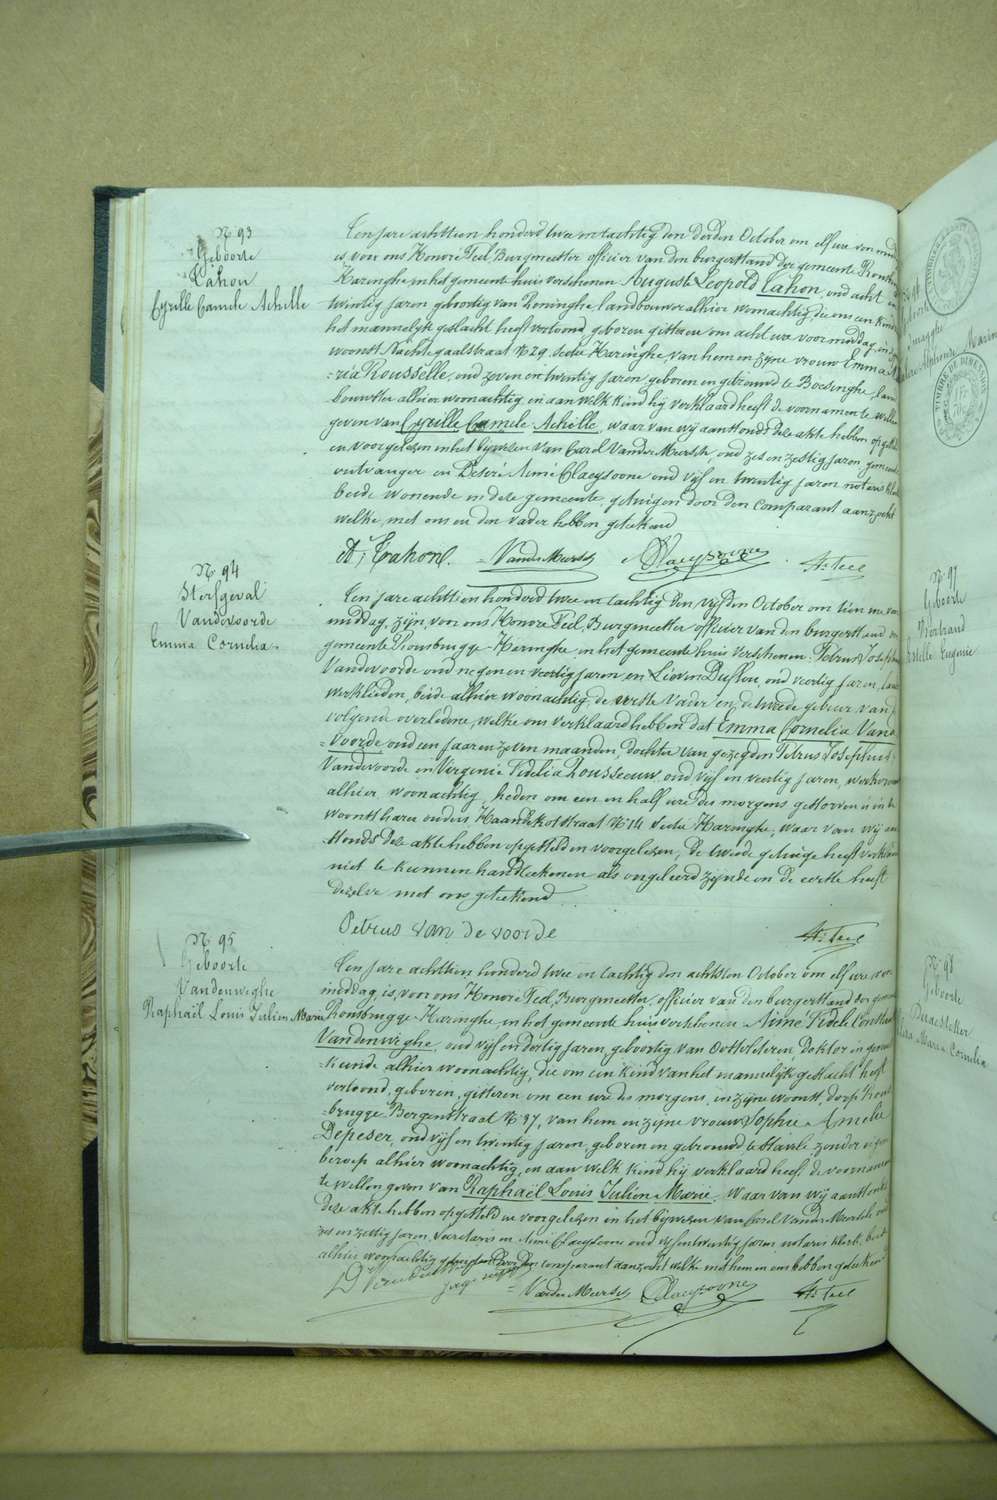 N. 93
Geboorte
Cahon
Cyrille Camele Achille
Ten jare achttien honderd twee en tachtig den derden October om elf ure voormid
is, voor ons Honore Teel, Burgmeester officier van den burgerstand der gemeente Rous
Haringhe in het gemeente huis verschenen Auguste Leopold Cahon, oud acht en
twintig jaren geboortig van landbouwer alhier woonachtig, die ons een kind
het mannelyk geslacht heeft vertoond, geboren gisteren om acht ure voormiddag, in zyn
woonst Nachtegaalstraat N. 29 sectie Haringhe van hem en zyne vrouw Emma
ria Rousselle, oud zeven en twintig jaren geboren en getrouwd te Boesinghe, lan
bouwster alhier woonachtig, en aan welk kind hy verklaard heeft de voornamen te willen
geven van Cyrille Camele Achille, waar van wy aanstonds deze akte hebben opgesteld
en voorgelezen in het bywezen van Carel VanderMeersch, oud zes en zestig jaren, gemeente
ontvanger en Desiré Aimé Claeysoone oud vyf en twintig jaren notaris klerk
beide wonende in deze gemeente getuigen door den comparant aanzocht
welke, met ons en den vader hebben geteekend
VanderMeersch Claeysoone H. Teel
N. 94
Sterfgeval
Vandevoorde
Emma Cornelia
Ten jare achttien honderd twee en tachtig den vyfden October om tien ure voor
middag, zyn, voor ons Honore Teel, Burgmeester officier van den burgerstand der
gemeente Rousbrugge-Haringhe in het gemeente huis verschenen Petrus Josephus
Vandevoorde oud negen en veertig jaren en Lievin oud veertig jaren,
werklieden, beide alhier woonachtig, de eerste vader en de tweede gebuer van de
volgende overledene, welke ons verklaard hebben dat Emma Cornelia Vande
voorde, oud een jaar en zeven maanden, dochter van gezegden Petrus Josephus
Vandevoorde en Virginie Fidelia Rousseeuw, oud vyf en veertig jaren, werkvrouw
alhier woonachtig, heden om een en half ure des morgens gestorven is in de
woonst harer ouders Haandekotstraat N. 14 sectie Haringhe, waar van wy aan
stonds deze akte hebben opgesteld en voorgelezen, de tweede getuige heeft verklaard
niet te kunnen handteekenen als ongeleerd zynde en de eerste heeft
dezelve met ons geteekend
Petrus van de voorde H. Teel
N. 95
Geboorte
Vandenweghe
Raphaël Louis Julien Marie
Ten jare achttien honderd twee en tachtig den achtsten October om elf ure voor
middag, is, voor ons Honore Teel, Burgmeester, officier van den burgerstand der gemeente
Rousbrugge-Haringhe in het gemeente huis verschenen Aimé Fidele Constant
Vandenweghe, oud vyf en dertig jaren, geboortig van Oostvleteren, Doktor in genees
kunde alhier woonachtig, die ons een kind van het mannelyk geslacht heeft
vertoond, geboren, gisteren om een ure des morgens, in zyne woonst, dorp Rous
brugge Bergenstraat N. 37, van hem en zyne vrouw Sophie Amelie
Depeser, oud vyf en twintig jaren, geboren en getrouwd te Stavele zonder eigen
beroep alhier woonachtig, en aan welk kind hy verklaard heeft de voornamen
te willen geven van Raphaël Louis Julien Marie, waar van wy aanstonds
deze akte hebben opgesteld en voorgelezen in het bywezen van Carel VanderMeersch oud
zes en zestig jaren, secretaris en Aimé Claeysoone oud vyf en twintig jaren notaris klerk, beide
alhier woonachtig getuigen door den comparant aanzocht welke met hem en ons hebben geteekend
VanderMeersch Claeysoone H. Teel
Geboorte
Marie
TIMBRE DE DIMENSION
N. 97
Geboorte
Bertrand
Eugenie
N. 98
Geboorte
Maria Cornelia